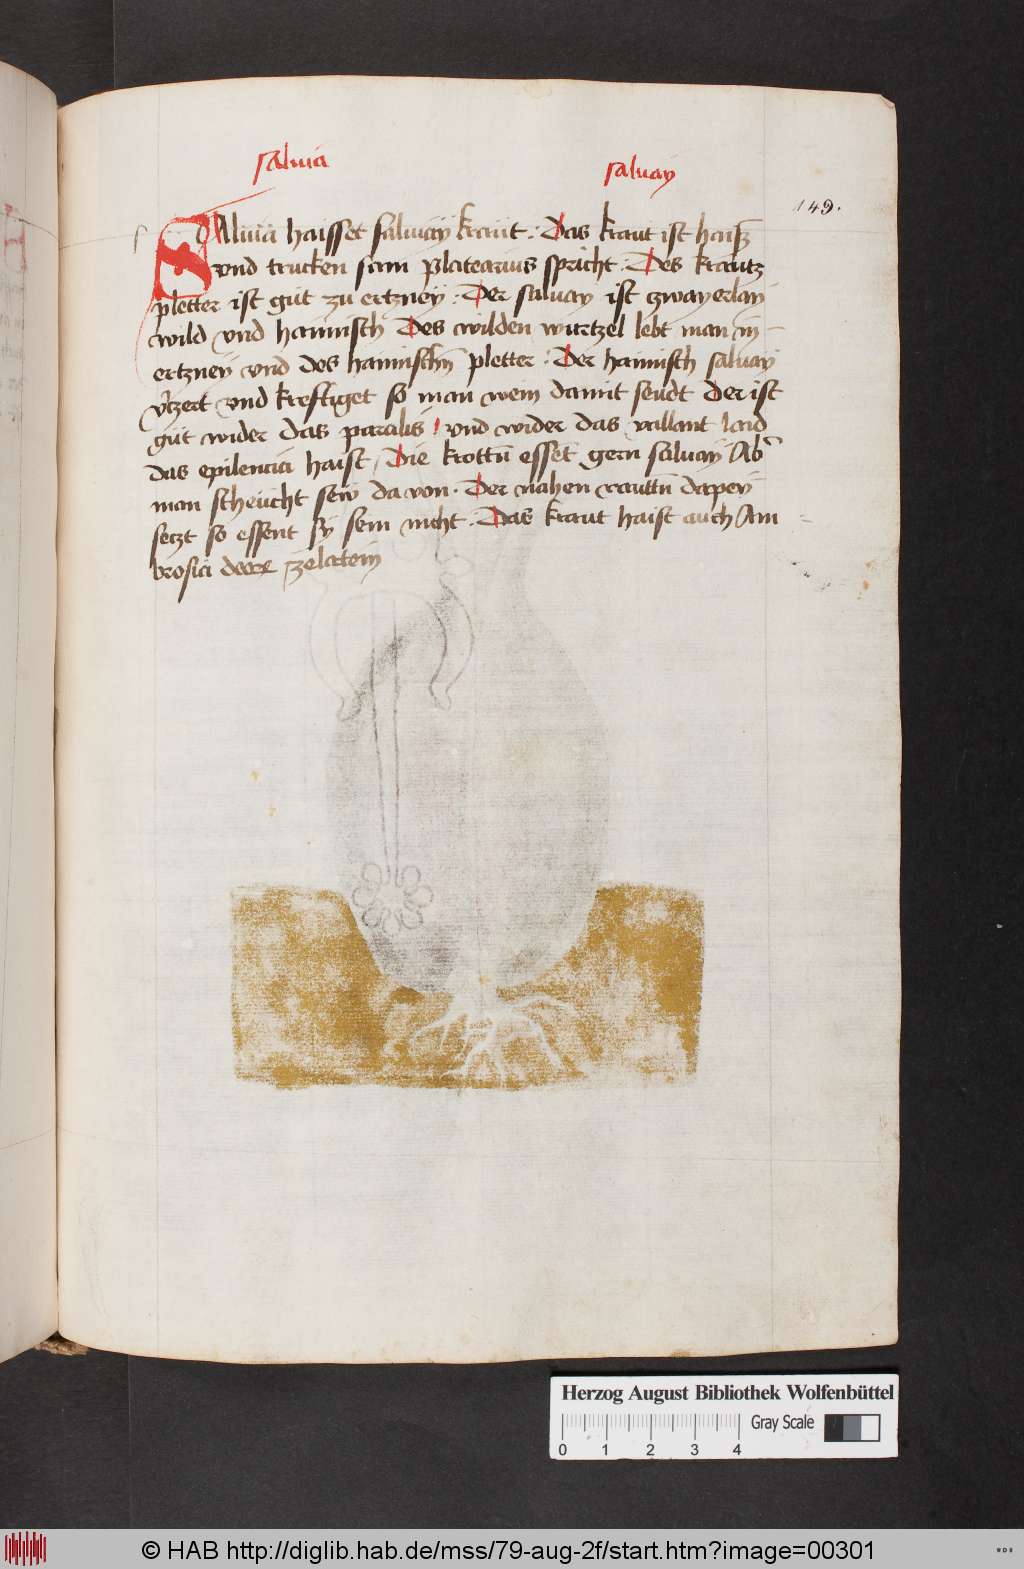 saluia salvay
149.
SAluia haisset saluay kraut : Das kraut ist haiß
vnd trucken sam platearius spricht : Des krautz
pletter ist güt zu ertzney : Der saluay ist zwayerlay
wild vnd haimisch Des wilden wurtzel lebt man in
ertzney vnd des haimischn pletter : Der haimisch saluay
vtzert vnd kreftiget so man wein damit seudt Der ist
güt wider das paralis vnd wider das vallant laid
das epilencia haist / Die krottn esset gern saluay Ab
man scheucht sew da von . Der nahen rauttn dapey
setzt so essent sy sein nicht . Das kraut haist auch Am
brosia
Herzog August Bibliothek Wolfenbüttel
Gray Scale
0 1 2 3 4
© HAB http://diglib.hab.de/mss/79-aug-2f/start.htm?image=00301